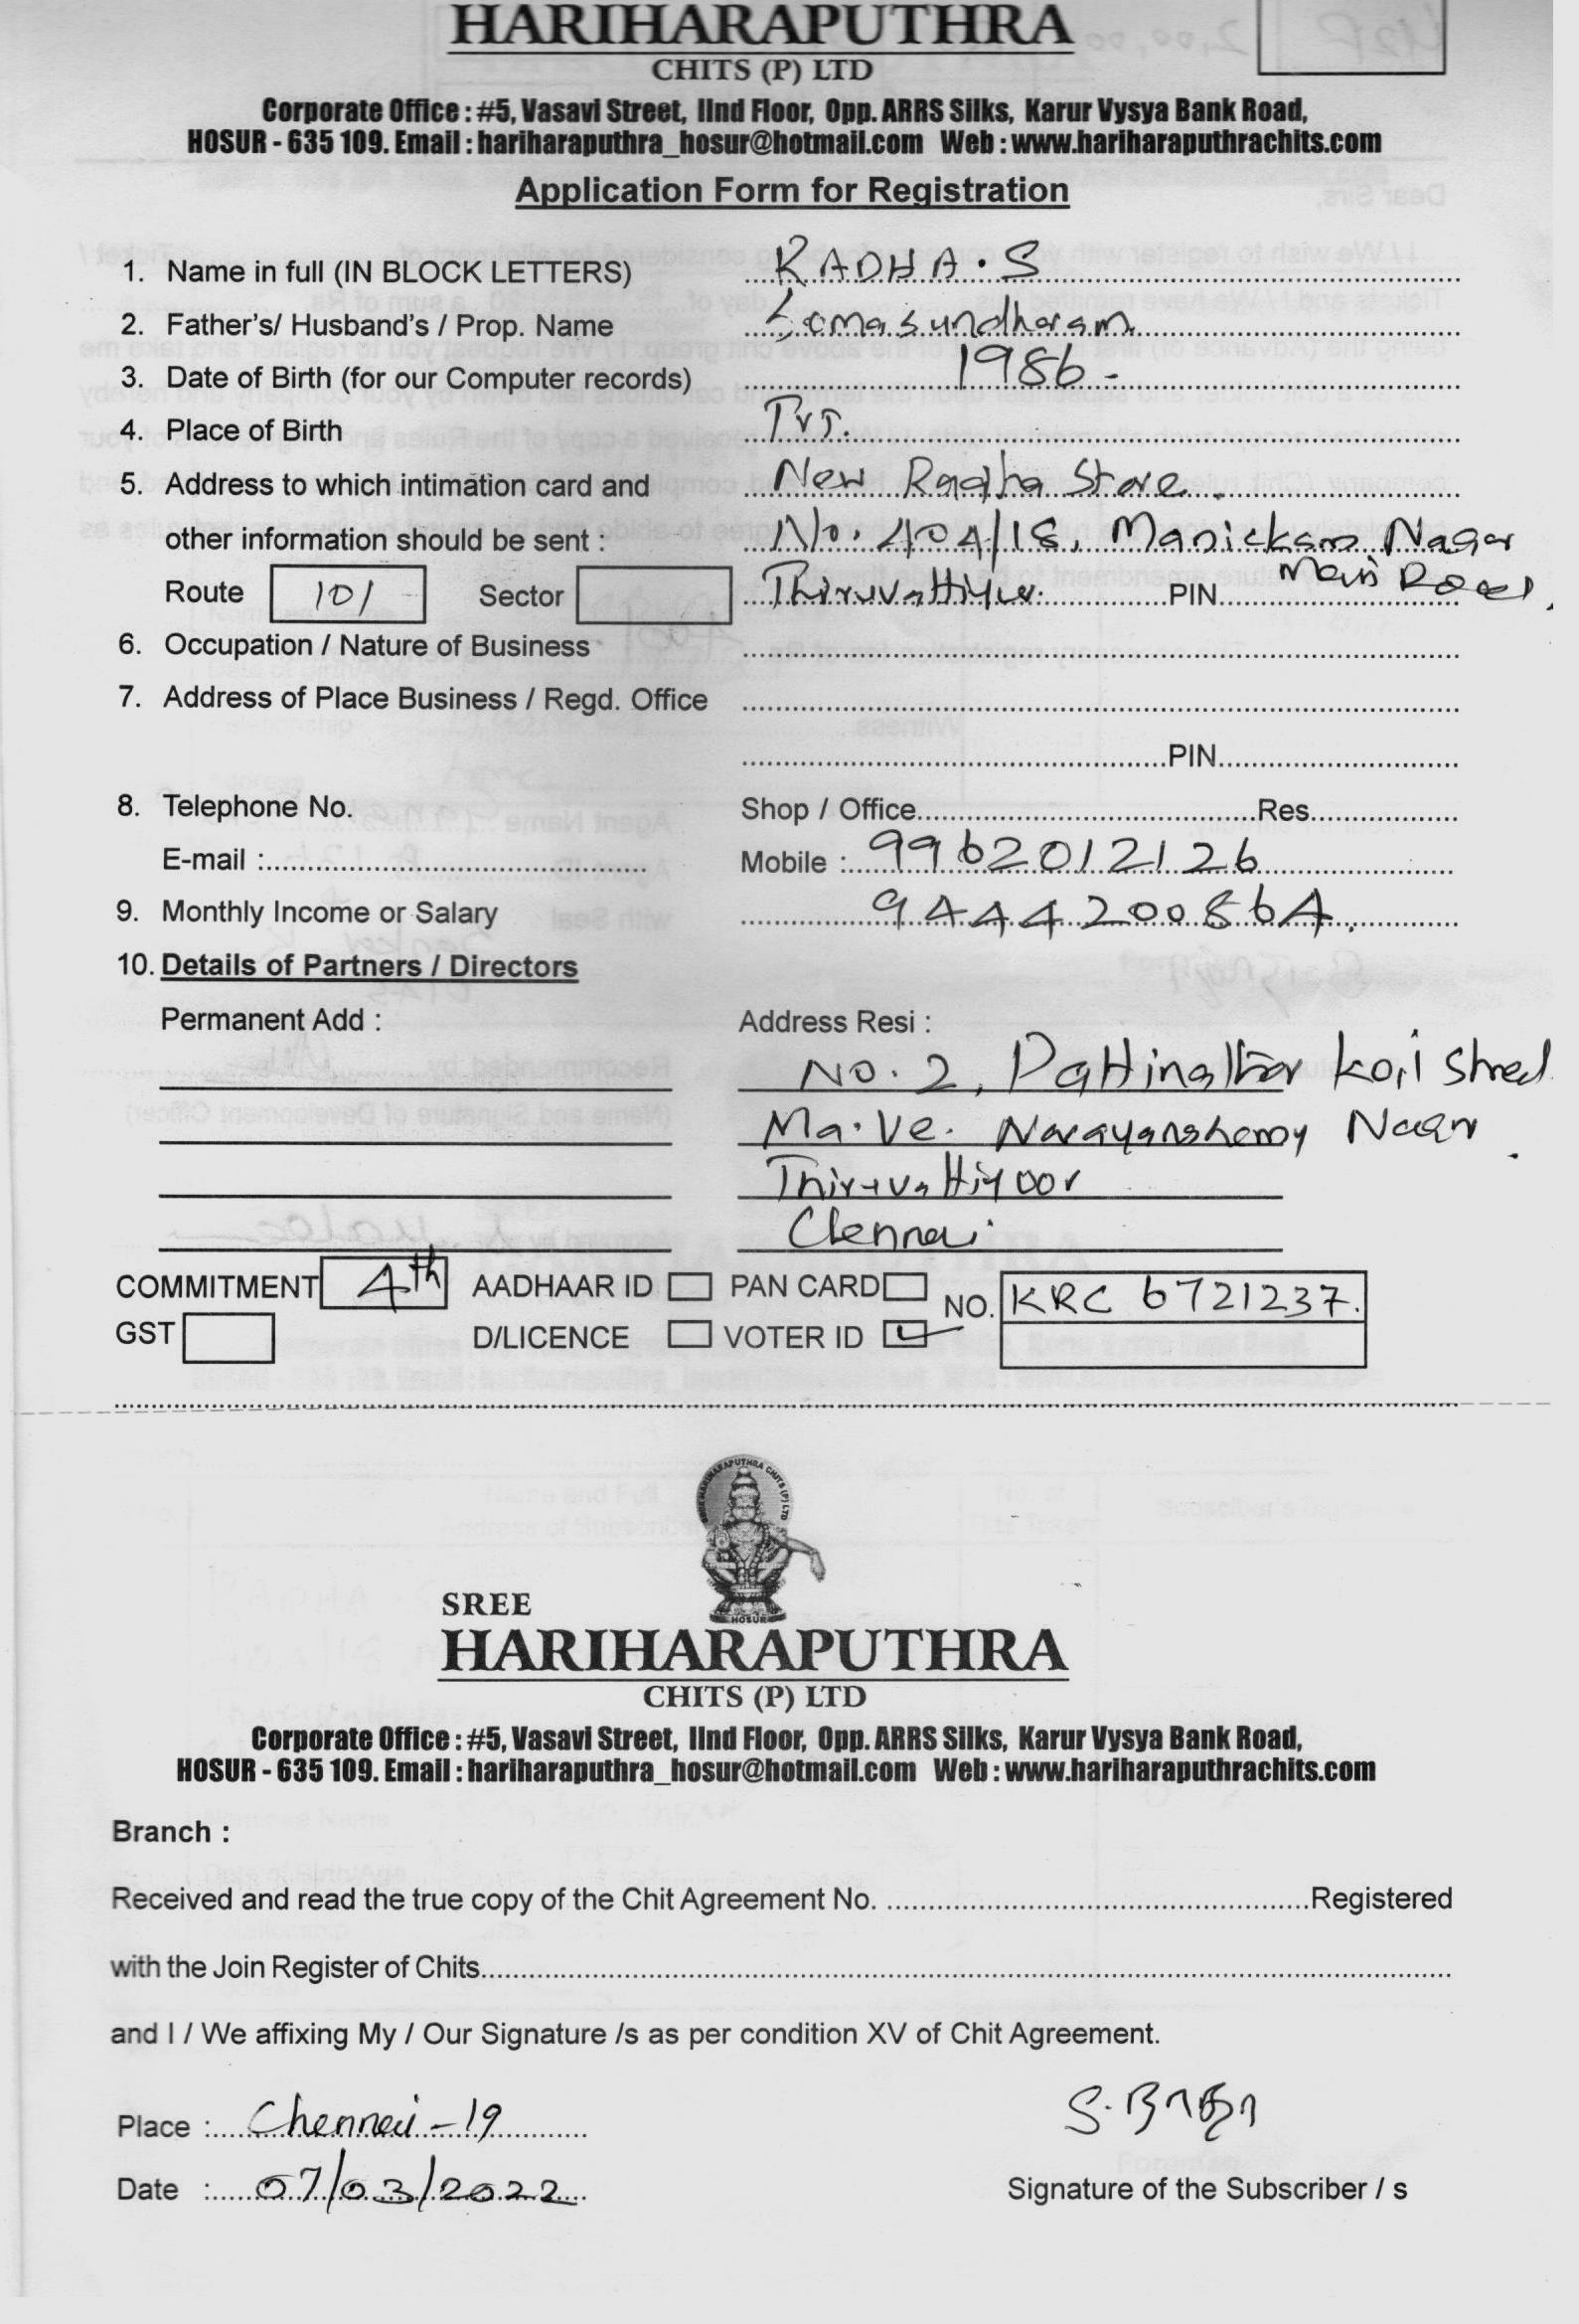 HARIHARAPUTHRA
CHITS (P) LTD
Corporate Office : #5, Vasavi Street, IInd Floor, Opp. ARRS Silks, Karur Vysya Bank Road,
HOSUR - 635 109. Email : hariharaputhra_hosur@hotmail.com Web : www.hariharaputhrachits.com
Application Form for Registration
1. Name in full (IN BLOCK LETTERS) RADHA . S
2. Father's/ Husband's / Prop. Name Somasundharam
3. Date of Birth (for our Computer records) 1986 -
4. Place of Birth TVT.
5. Address to which intimation card and New Radha Store.
other information should be sent : No. 404/18, Manickam Nagar
Main Road,
Route 101 Sector Thiruvottiyur. PIN
6. Occupation / Nature of Business
7. Address of Place Business / Regd. Office
PIN
8. Telephone No. Shop / Office Res
E-mail : Mobile : 9962012126
9. Monthly Income or Salary 9444200864.
10. Details of Partners / Directors
Permanent Add : Address Resi :
NO. 2, Pattinathar Koil Street
Ma. Ve. Narayanshamy Nagar.
Thiruvottiyoor
Chennai.
COMMITMENT 4th AADHAAR ID PAN CARD NO. KRC 6721237.
GST D/LICENCE VOTER ID
SREE HARIHARAPUTHRA CHITS (P) LTD
HOSUR
SREE
HARIHARAPUTHRA
CHITS (P) LTD
Corporate Office : #5, Vasavi Street, IInd Floor, Opp. ARRS Silks, Karur Vysya Bank Road,
HOSUR - 635 109. Email : hariharaputhra_hosur@hotmail.com Web : www.hariharaputhrachits.com
Branch :
Received and read the true copy of the Chit Agreement No. Registered
with the Join Register of Chits
and I / We affixing My / Our Signature /s as per condition XV of Chit Agreement.
Place : Chennai - 19 S. ராதா
Date : 07/03/2022 Signature of the Subscriber / s